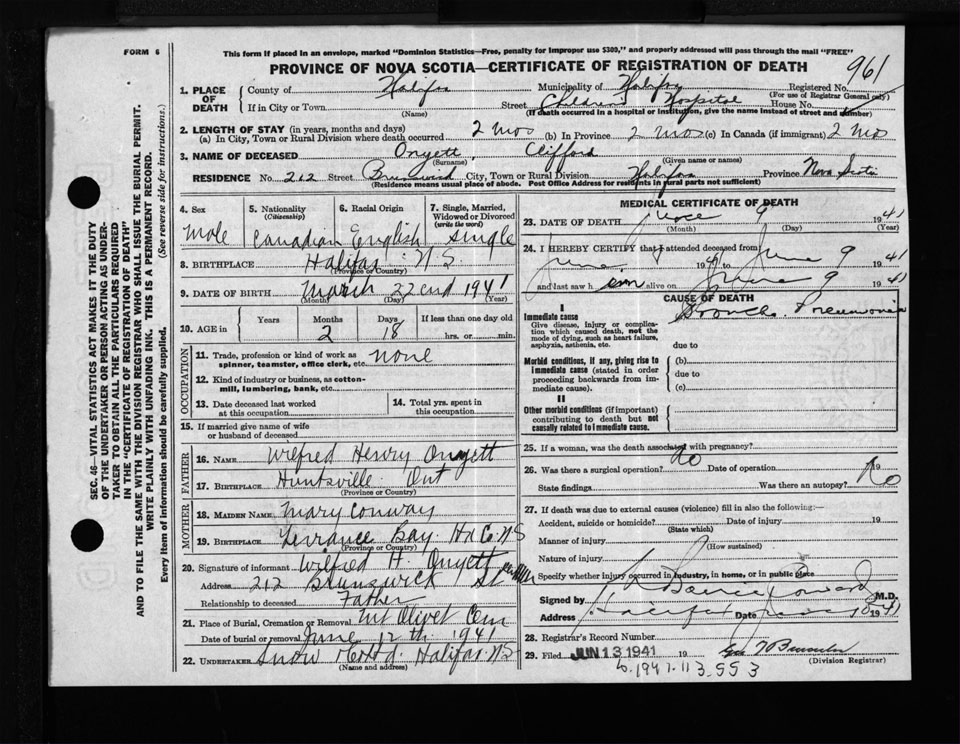 FORM 6
This form if placed in an envelope, marked "Dominion Statistics—Free, penalty for improper use $300," and properly addressed will pass through the mail "FREE"
PROVINCE OF NOVA SCOTIA—CERTIFICATE OF REGISTRATION OF DEATH
961
1. PLACE OF DEATH
County of Halifax Municipality of Halifax Registered No.
(For use of Registrar General only)
If in City or Town Street Children's Hospital House No.
(Name) (If death occurred in a hospital or institution, give the name instead of street and number)
2. LENGTH OF STAY (in years, months and days)
(a) In City, Town or Rural Division where death occurred 2 mos (b) In Province 2 mos (c) In Canada (if immigrant) 2 mo
3. NAME OF DECEASED Onyett, Clifford
(Surname) (Given name or names)
RESIDENCE No. 212 Street Brunswick City, Town or Rural Division Halifax Province Nova Scotia
(Residence means usual place of abode. Post Office Address for residents in rural parts not sufficient)
4. Sex
Male
5. Nationality
(Citizenship)
Canadian
6. Racial Origin
English
7. Single, Married, Widowed or Divorced
(write the word)
Single
8. BIRTHPLACE Halifax N.S.
(Province or Country)
9. DATE OF BIRTH March 22nd 1941
(Month) (Day) (Year)
10. AGE in
Years Months Days If less than one day old
2 18 hrs. or min.
OCCUPATION
11. Trade, profession or kind of work as spinner, teamster, office clerk, etc. None
12. Kind of industry or business, as cotton-mill, lumbering, bank, etc.
13. Date deceased last worked at this occupation
14. Total yrs. spent in this occupation
15. If married give name of wife or husband of deceased
FATHER
16. NAME Wilfred Henry Onyett
17. BIRTHPLACE Huntsville Ont
(Province or Country)
MOTHER
18. MAIDEN NAME Mary Conway
19. BIRTHPLACE Terrance Bay Hx Co. N S
(Province or Country)
20. Signature of informant Wilfred H. Onyett
Address 212 Brunswick St
Relationship to deceased Father
21. Place of Burial, Cremation or Removal Mt Olivet Cem
Date of burial or removal June 12th 1941
22. UNDERTAKER Snow & Co Ltd. Halifax N S
(Name and address)
MEDICAL CERTIFICATE OF DEATH
23. DATE OF DEATH June 9 1941
(Month) (Day) (Year)
24. I HEREBY CERTIFY that I attended deceased from
June 1941 to June 9 1941
and last saw him alive on June 9 1941
CAUSE OF DEATH
I
Immediate cause Broncho Pneumonia
Give disease, injury or complication which caused death, not the mode of dying, such as heart failure, asphyxia, asthenia, etc.
due to
Morbid conditions, if any, giving rise to immediate cause (stated in order proceeding backwards from immediate cause).
(b)
due to
(c)
II
Other morbid conditions (if important) contributing to death but not causally related to immediate cause.
25. If a woman, was the death associated with pregnancy?
26. Was there a surgical operation? No Date of operation 19
State findings Was there an autopsy? No
27. If death was due to external causes (violence) fill in also the following:—
Accident, suicide or homicide? Date of injury 19
(State which)
Manner of injury
(How sustained)
Nature of injury
Specify whether injury occurred in industry, in home, or in public place
Signed by M.D.
Address Halifax Date June 1941
28. Registrar's Record Number
29. Filed JUN 13 1941 19
(Division Registrar)
b. 1941-113,553
SEC. 46—VITAL STATISTICS ACT MAKES IT THE DUTY
OF THE UNDERTAKER OR PERSON ACTING AS UNDER-
TAKER TO OBTAIN ALL THE PARTICULARS REQUIRED
IN THE "CERTIFICATE OF REGISTRATION OF DEATH"
AND TO FILE THE SAME WITH THE DIVISION REGISTRAR WHO SHALL ISSUE THE BURIAL PERMIT.
WRITE PLAINLY WITH UNFADING INK. THIS IS A PERMANENT RECORD.
Every item of information should be carefully supplied. (See reverse side for instructions.)